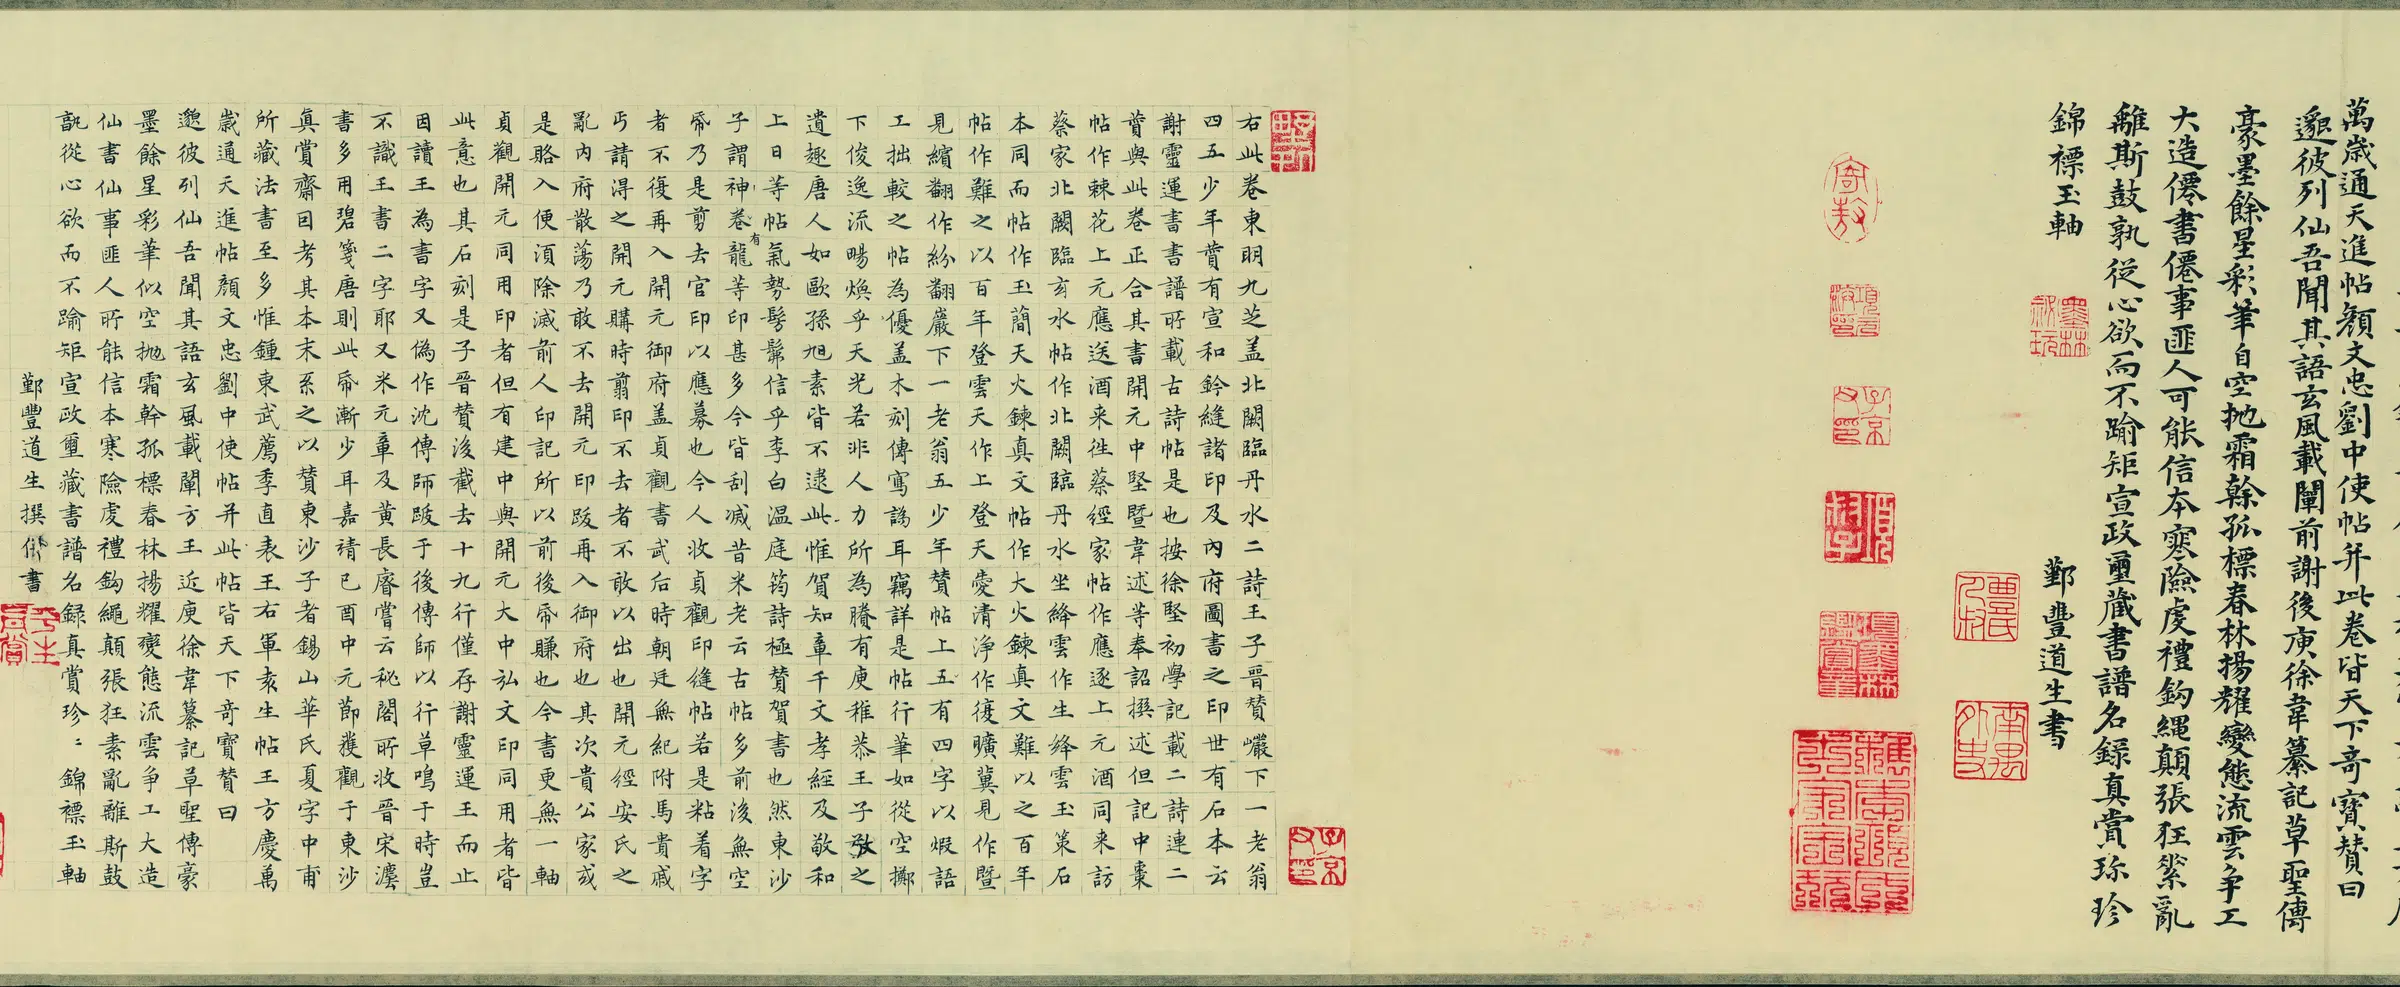 萬歲通天進帖顏文忠劉中使帖并此卷皆天下奇寶贊曰
邈彼列仙吾聞其語玄風載闡前謝後庾徐韋纂記草聖傳
豪墨餘星彩筆自空抛霜幹孤標春林揚耀變態流雲爭工
大造僊書僊事匪人可能信本寒險虔禮鈎繩顛張狂縈亂
離斯鼓孰從心欲而不踰矩宣政璽藏書譜名錄真賞珎珍
錦褾玉軸
鄞豐道生書
右此卷東明九芝盖北闕臨丹水二詩王子晉贊巖下一老翁
四五少年贊有宣和鈐縫諸印及內府圖書之印世有石本云
謝靈運書書譜所載古詩帖是也按徐堅初學記載二詩連二
贊與此卷正合其書開元中堅暨韋述等奉詔撰述但記中棗
帖作棘花上元應送酒来徃蔡經家帖作應逐上元酒同来訪
蔡家北闕臨玄水帖作北闕臨丹水坐絳雲作生絳雲玉䇿石
本同而帖作玉簡天火鍊真文帖作大火鍊真文難以之百年
帖作難之以百年登雲天作上登天蹔清淨作復曠冀見作暨
見繽翻作紛翻巖下一老翁五少年贊帖上五有四字以嘏語
工拙較之帖為優盖木刻傳寫譌耳竊詳是帖行筆如從空擲
下俊逸流暘煥乎天光若非人力所為騰有庾稚恭王子敬之
遺趣唐人如歐孫旭素皆不逮此惟賀知章千文孝經及敬和
上日等帖氣勢髣髴信乎李白温庭筠詩極贊賀書也然東沙
子謂神卷有龍等印甚多今皆刮滅昔米老云古帖多前後無空
帋乃是剪去官印以應募也今人收貞觀印縫帖若是粘着字
者不復再入開元御府盖貞觀書武后時朝廷無紀附馬貴戚
丐請得之開元購時翦印不去者不敢以出也開元經安氏之
亂內府散蕩乃敢不去開元印跋再入御府也其次貴公家或
是賂入便湏除滅前人印記所以前後帋賺也今書更無一軸
貞觀開元同用印者但有建中與開元大中弘文印同用者皆
此意也其石刻是子晉贊後截去十九行僅存謝靈運王而止
因讀王為書字又偽作沈傳師跋于後傳師以行草鳴于時豈
不識王書二字耶又米元章及黄長睿嘗云秘閣所收晉宋灋
書多用碧箋唐則此帋漸少耳嘉靖己酉中元節獲觀于東沙
真賞齋因考其本末系之以贊東沙子者錫山華氏夏字中甫
所藏法書至多惟鍾東武薦季直表王右軍袁生帖王方慶萬
歲通天進帖顏文忠劉中使帖并此帖皆天下奇寶贊曰
邈彼列仙吾聞其語玄風載闡方王近庾徐韋纂記草聖傳豪
墨餘星彩筆似空抛霜幹孤標春林揚耀變態流雲爭工大造
仙書仙事匪人所能信本寒險虔禮鈎繩顛張狂素亂離斯鼓
孰從心欲而不踰矩宣政璽藏書譜名錄真賞珍〻錦褾玉軸
鄞豐道生撰併書